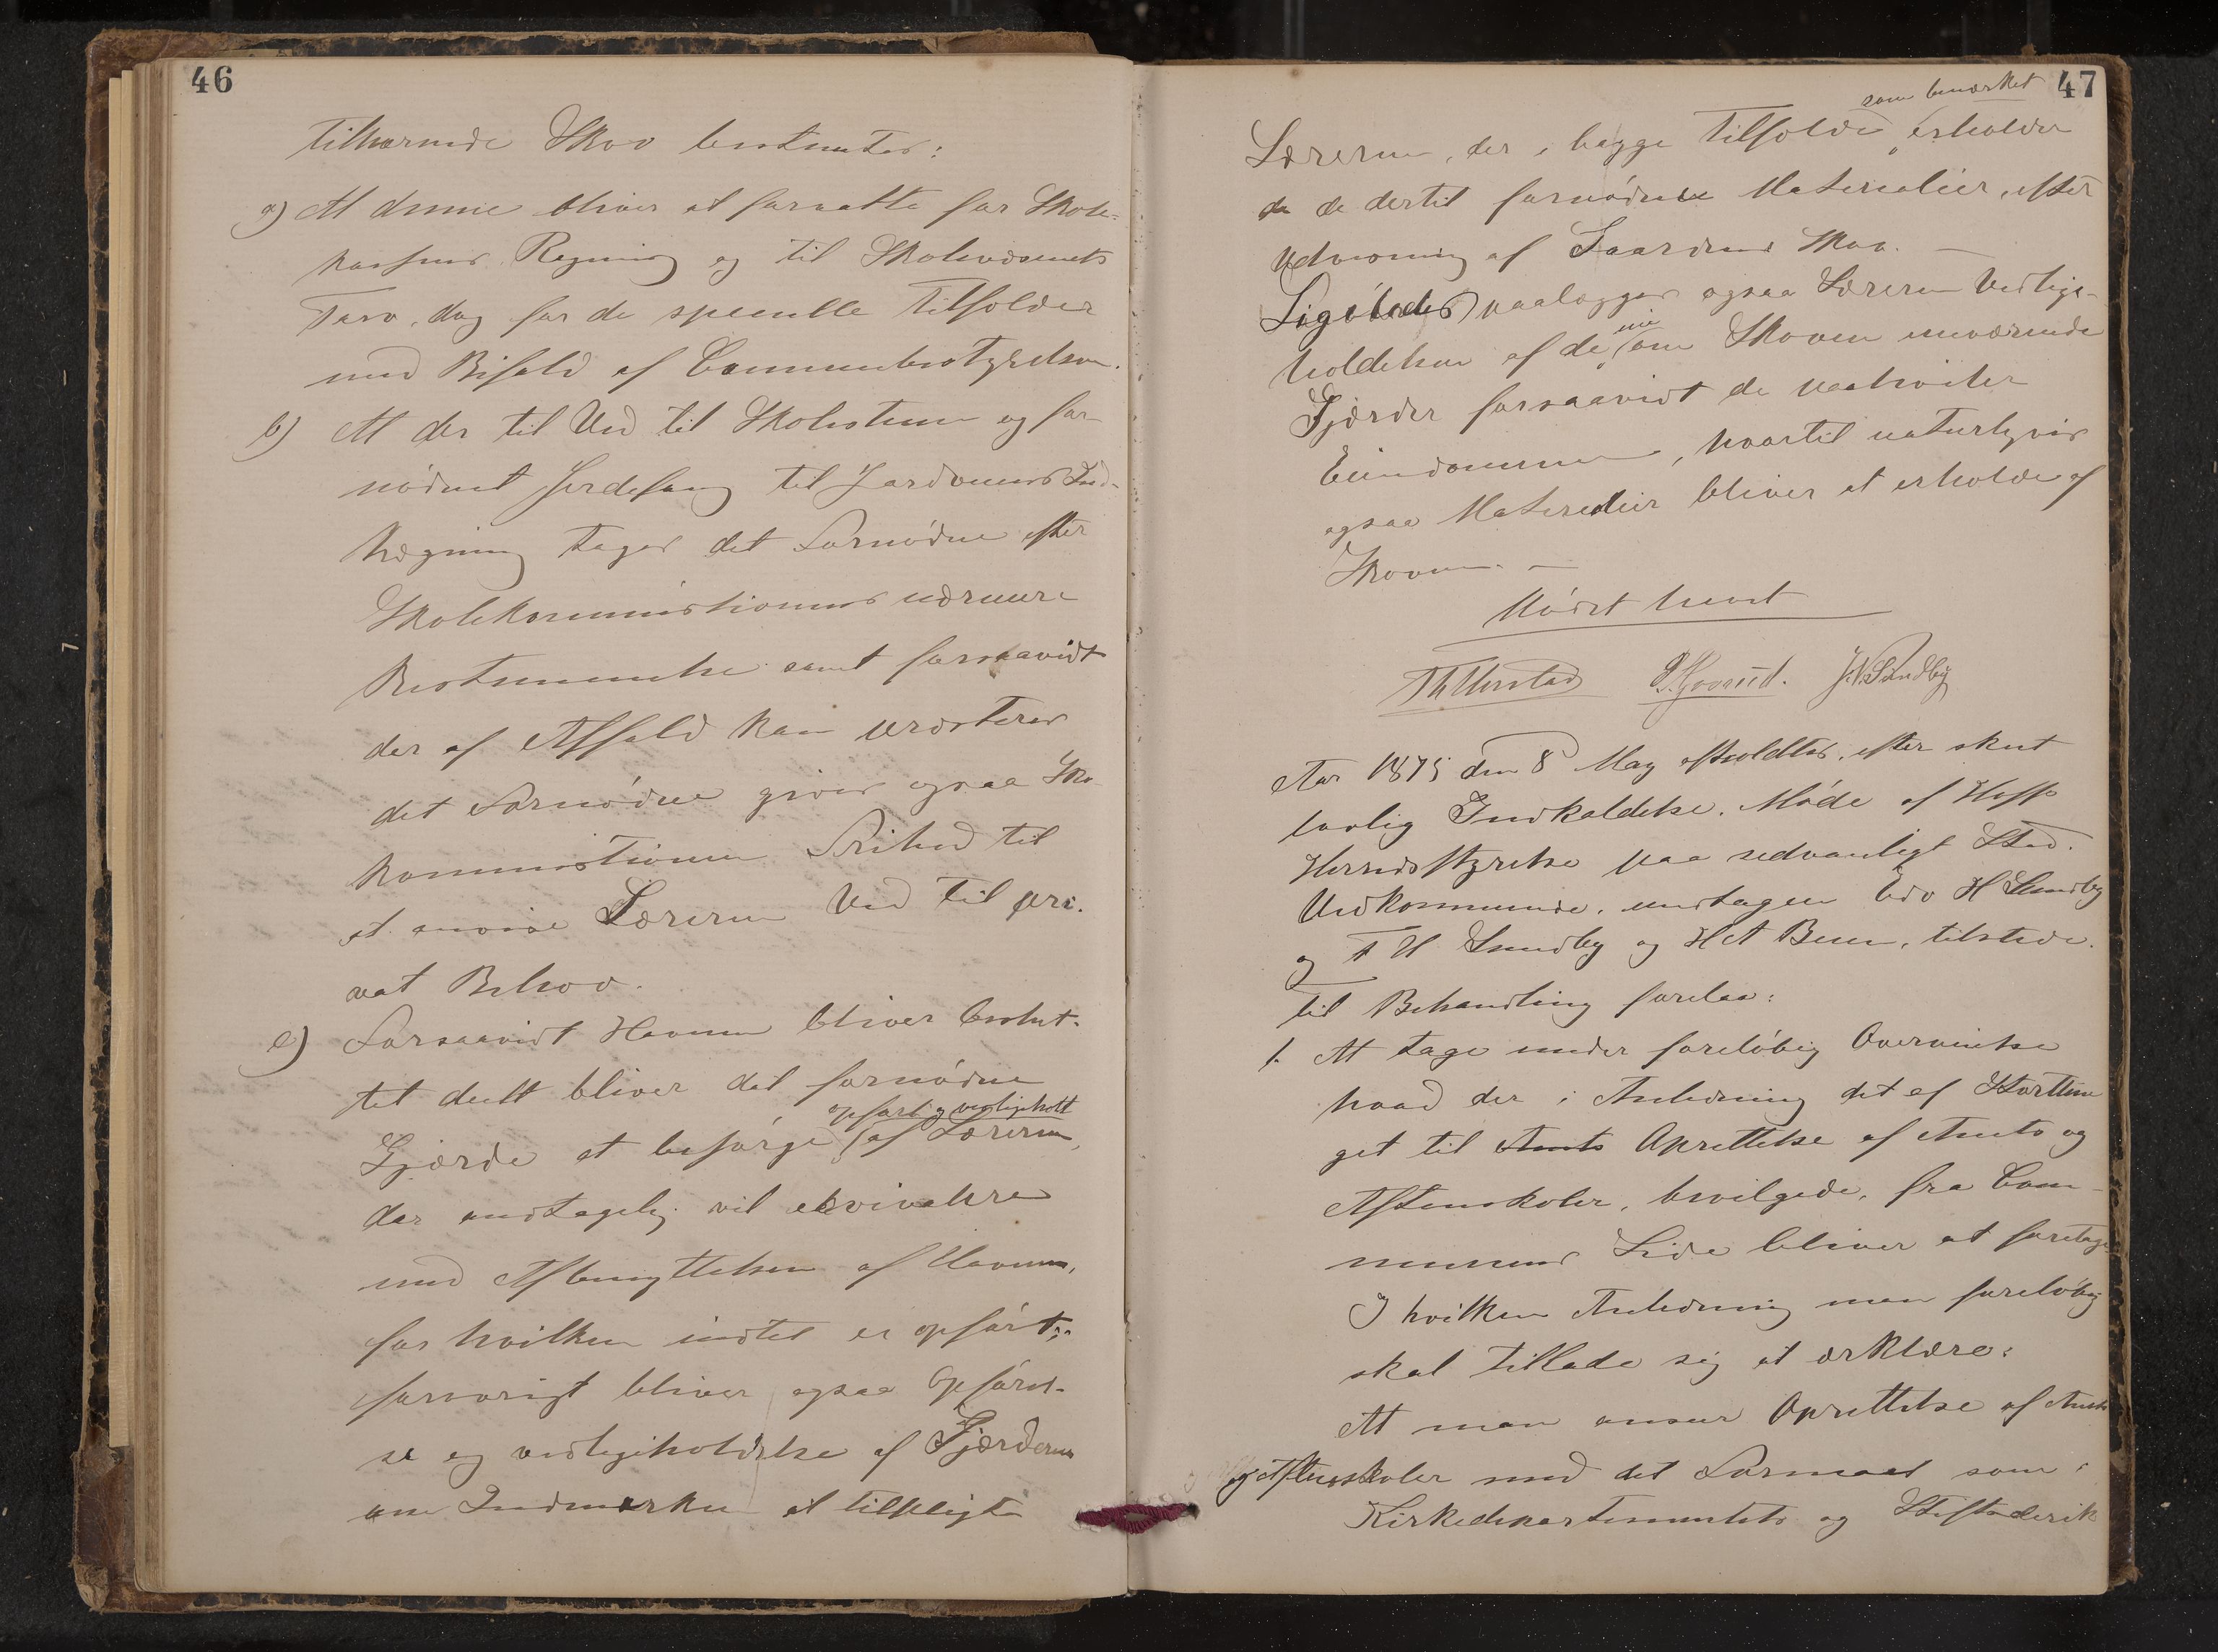 46
tilhørende Skov bestemtes:
a) At denne bliver at forvalte for Skole-
kassens Regning og til Skolevæsenets
Tarv, dog for de specielle Tilfælder
med Bifald af Communebestyrelsen.
b) At der til Ved til Skolestuen og for-
nødent Gjerdefang til Jordveiens Ind-
hægning tages det Fornødne efter
Skolekommissionens nærmere
Bestemmelse samt forsaavidt
der af Affald kan præsteres
det Fornødne gives ogsaa Sko-
kommissionen Frihed til
at anvise Læreren Ved til pri-
vat Behov.
c) Forsaavidt Havnen bliver beslut-
tet delt bliver det fornødne
opført og vedligeholt
Gjærde at besørge af Læreren,
der antagelig vil ekvivalere
med Afbenyttelsen af Havnen,
for hvilken intet er opført;
forøvrigt bliver ogsaa Opførel-
se og vedligeholdelse af Gjærderne
om Indmarken at tilpligte
47
som bemærket
Læreren, der i begge Tilfælde erholder
de dertil fornødne Materialier, efter
Udvisning af Gaardens Skov. —
Ligeledes paalægges ogsaa Læreren Vedlige-
nu
holdelsen af de om Skoven nuværende
Gjærder forsaavidt de paahviler
Eiendommen, hvortil naturligvis
ogsaa Materialier bliver at erholde af
Skoven. —
Mødet hævet
J. N. Sundby
Aar 1875 den 8 May afholdtes, efter skeet
lovlig Indkaldelse, Møde af Hoffs
Herredsstyrelse paa sedvanligt Sted.
Vedkommende, undtagen Edv H Sundby
og T H Sundby og H A Buen, tilstede.
Til Behandling forelaa:
1. At tage under foreløbig Overveielse
hvad der i Anledning det af Storthin
get til Amts Oprettelse af Amts og
Aftenskoler, bevilgede, fra Com-
munens Side bliver at foretage
I hvilken Anledning man foreløbig
skal tillade sig at ærklære:
At man anser Oprettelse af Amts
og Aftenskoler med det Formaal som i
Kirkedepartementets og Stiftsderik